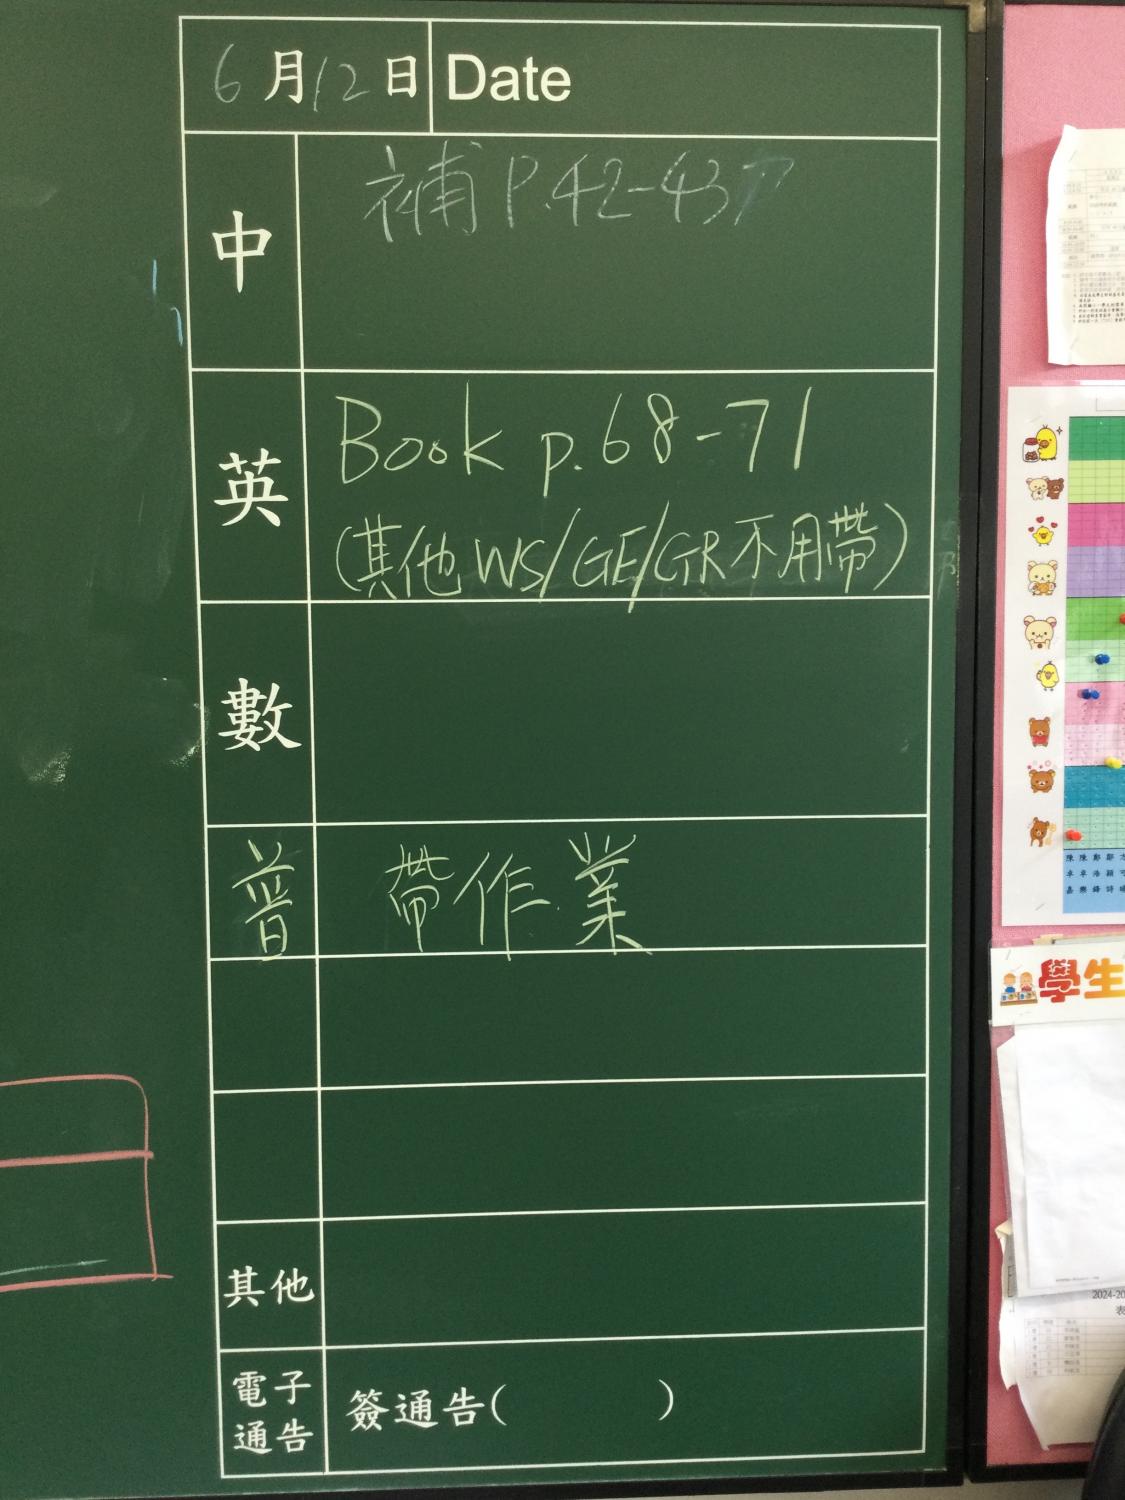 6月12日 Date
中 補 P.42-43
英 Book p.68-71
(其他 WS/GE/GR 不用帶)
數
普 帶作業
其他
電子通告 簽通告( )
學生
2024-20
陳 陳 鄭 鄒
卓 卓 浩 穎
嘉 樂 鋒 詩